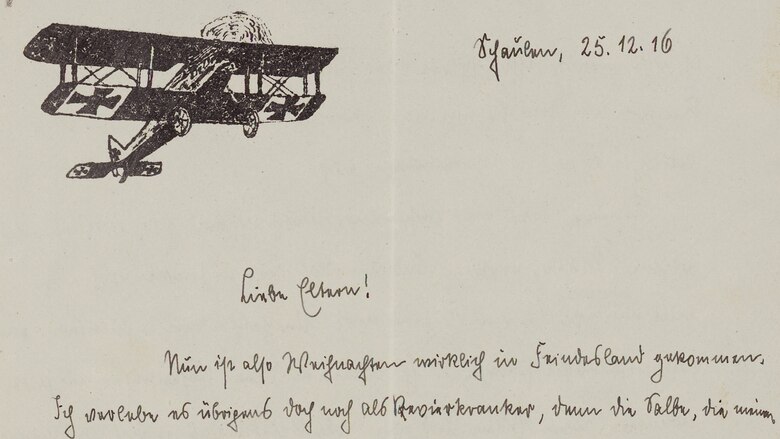 Schaulen, 25.12.16
Liebe Eltern!
Nun ist also Weihnachten wirklich in Feindesland gekommen.
Ich verlebe es übrigens doch noch als Revierkranker, denn die Salbe, die meine